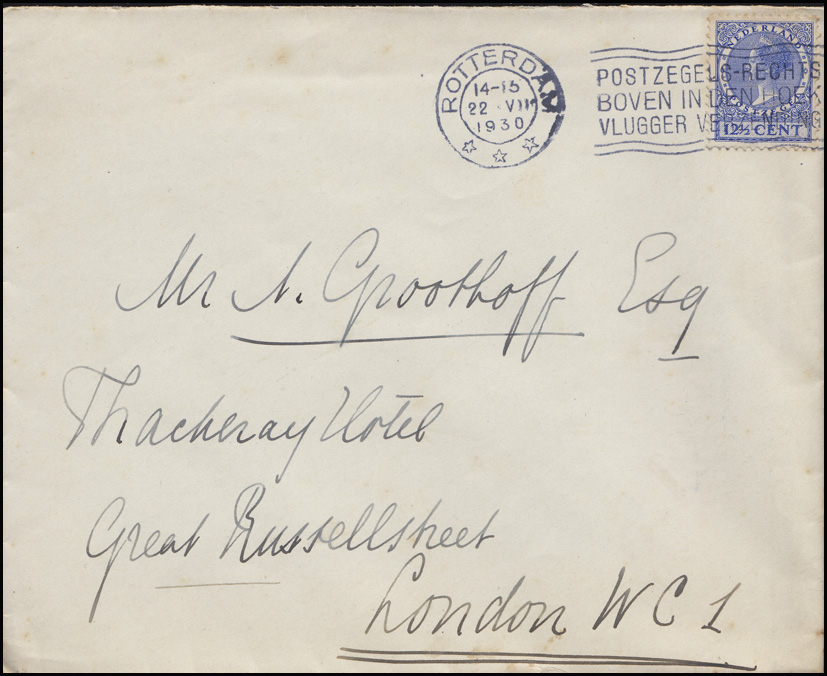 ROTTERDAM
14-15
22 VIII
1930
POSTZEGELS-RECHTS
BOVEN IN DEN HOEK
VLUGGER VERZENDING
NEDERLAND
12½ CENT
Mr A. Groothoff Esq
Thackeray Hotel
Great Russellstreet
London W C 1